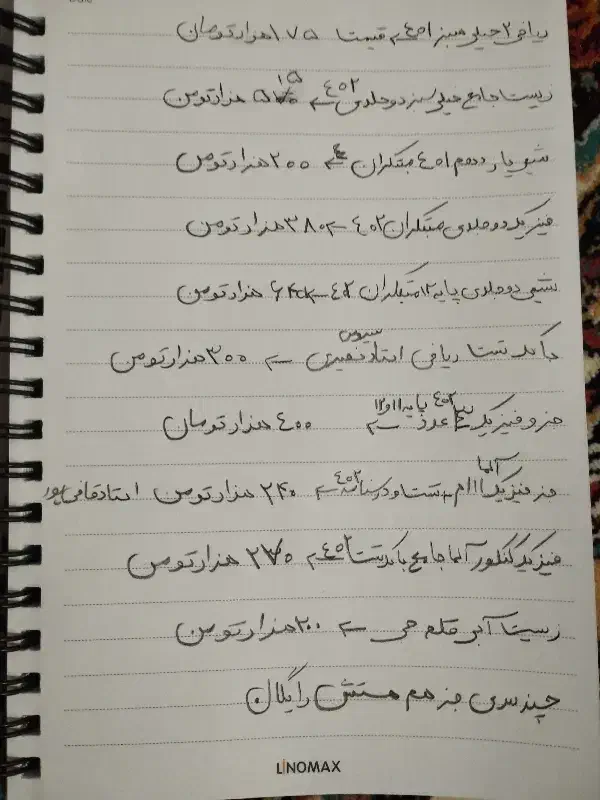 ریاضی ۲ خیلی سبز ۴۰۱ ← قیمت ۱۷۵ هزار تومان
زیست جامع خیلی سبز دو جلدی ۴۰۲ ← ۵۱۵ هزار تومن
شیمی یازدهم ۴۰۱ مبتکران ← ۲۰۰ هزار تومن
فیزیک دو جلدی مبتکران ۴۰۲ ← ۳۸۰ هزار تومن
شیمی دو جلدی پایه ۱۲ مبتکران ۴۰۲ ← هزار تومن
بانک تست ریاضی استاد نصیری ← ۳۰۰ هزار تومن
جزوفیزیک عدد ۴۰۲ پایه ۱۱ و ۱۲ ← ۴۰۰ هزار تومان
جزفیزیک آلما تست و درسنامه ۴۰۲ ← ۲۴۰ هزار تومن استاد
فیزیک کنکور آلما جامع بانک تست ۴۰۲ ← ۲۷۵ هزار تومن
زیست آبی قلم چی ← ۲۰۰ هزار تومن
چند سری جز هم هستش رایگان
LINOMAX